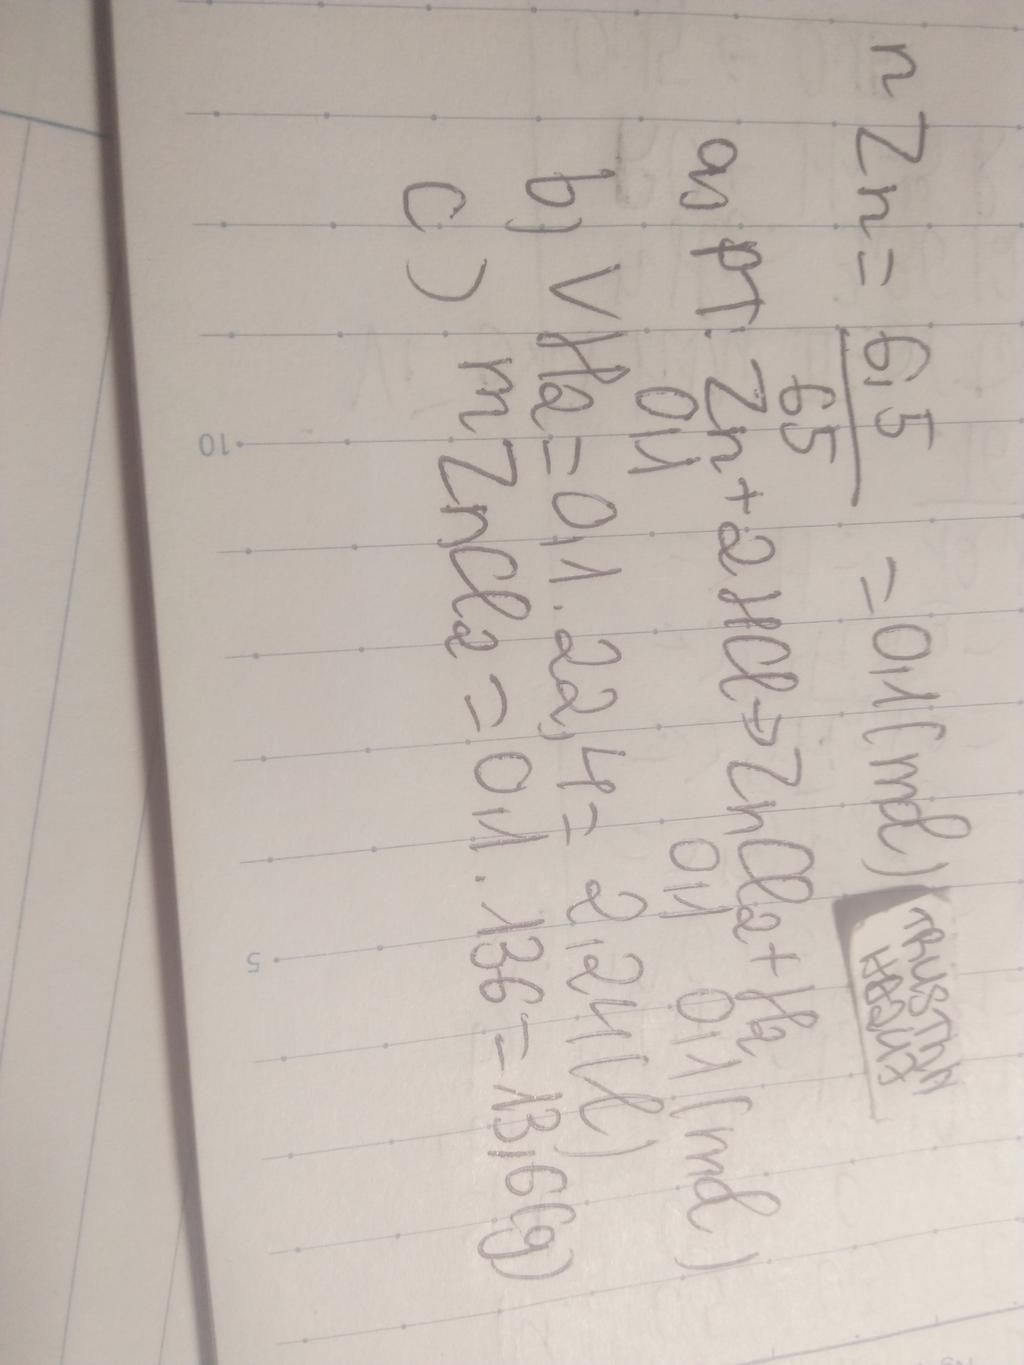 n Zn = 6,5 / 65 = 0,1 (mol)
a) PT: Zn + 2HCl → ZnCl2 + H2
0,1 0,1 0,1 (mol)
b) V H2 = 0,1 . 22,4 = 2,24 (l)
c) m ZnCl2 = 0,1 . 136 = 13,6 (g)
10
5